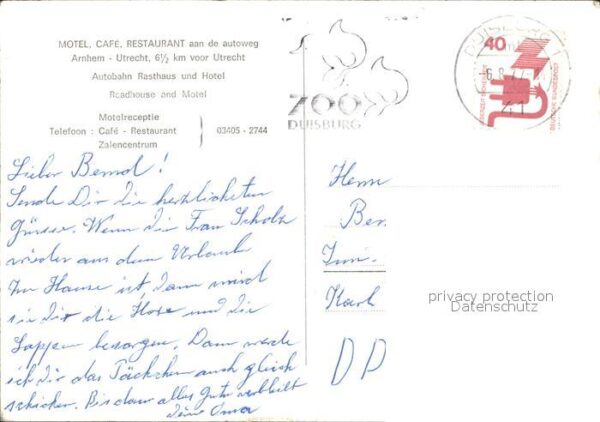 MOTEL, CAFÉ, RESTAURANT aan de autoweg
Arnhem - Utrecht, 6½ km voor Utrecht
Autobahn Rasthaus und Hotel
Roadhouse and Motel
Motelreceptie
Telefoon : Café - Restaurant 03405 - 2744
Zalencentrum
ZOO
DUISBURG
DUISBURG 1
40
-6.8.77
41
DEUTSCHE BUNDESPOST
Lieber Bernd!
Sende Dir die herzlichsten
Grüsse. Wenn die Frau Scholz
wieder aus dem Urlaub
Im Hause ist, dann wird
sie Dir die Hose und die
Lappen besorgen. Dann werde
ich Dir das Päckchen auch gleich
schicken. Bis dann alles Gute verbleibt
Deine Oma
Herrn
Ber
Karl
DD
privacy protection
Datenschutz